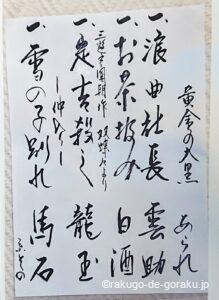 一、黄金の大黒 あられ
一、浪曲社長 雲助
一、お茶汲み 白酒
三遊亭圓朝作 双蝶々より
一、定吉殺し 龍玉
〜仲入り〜
一、雪の子別れ 馬石
©rakugo-de-goraku.jp